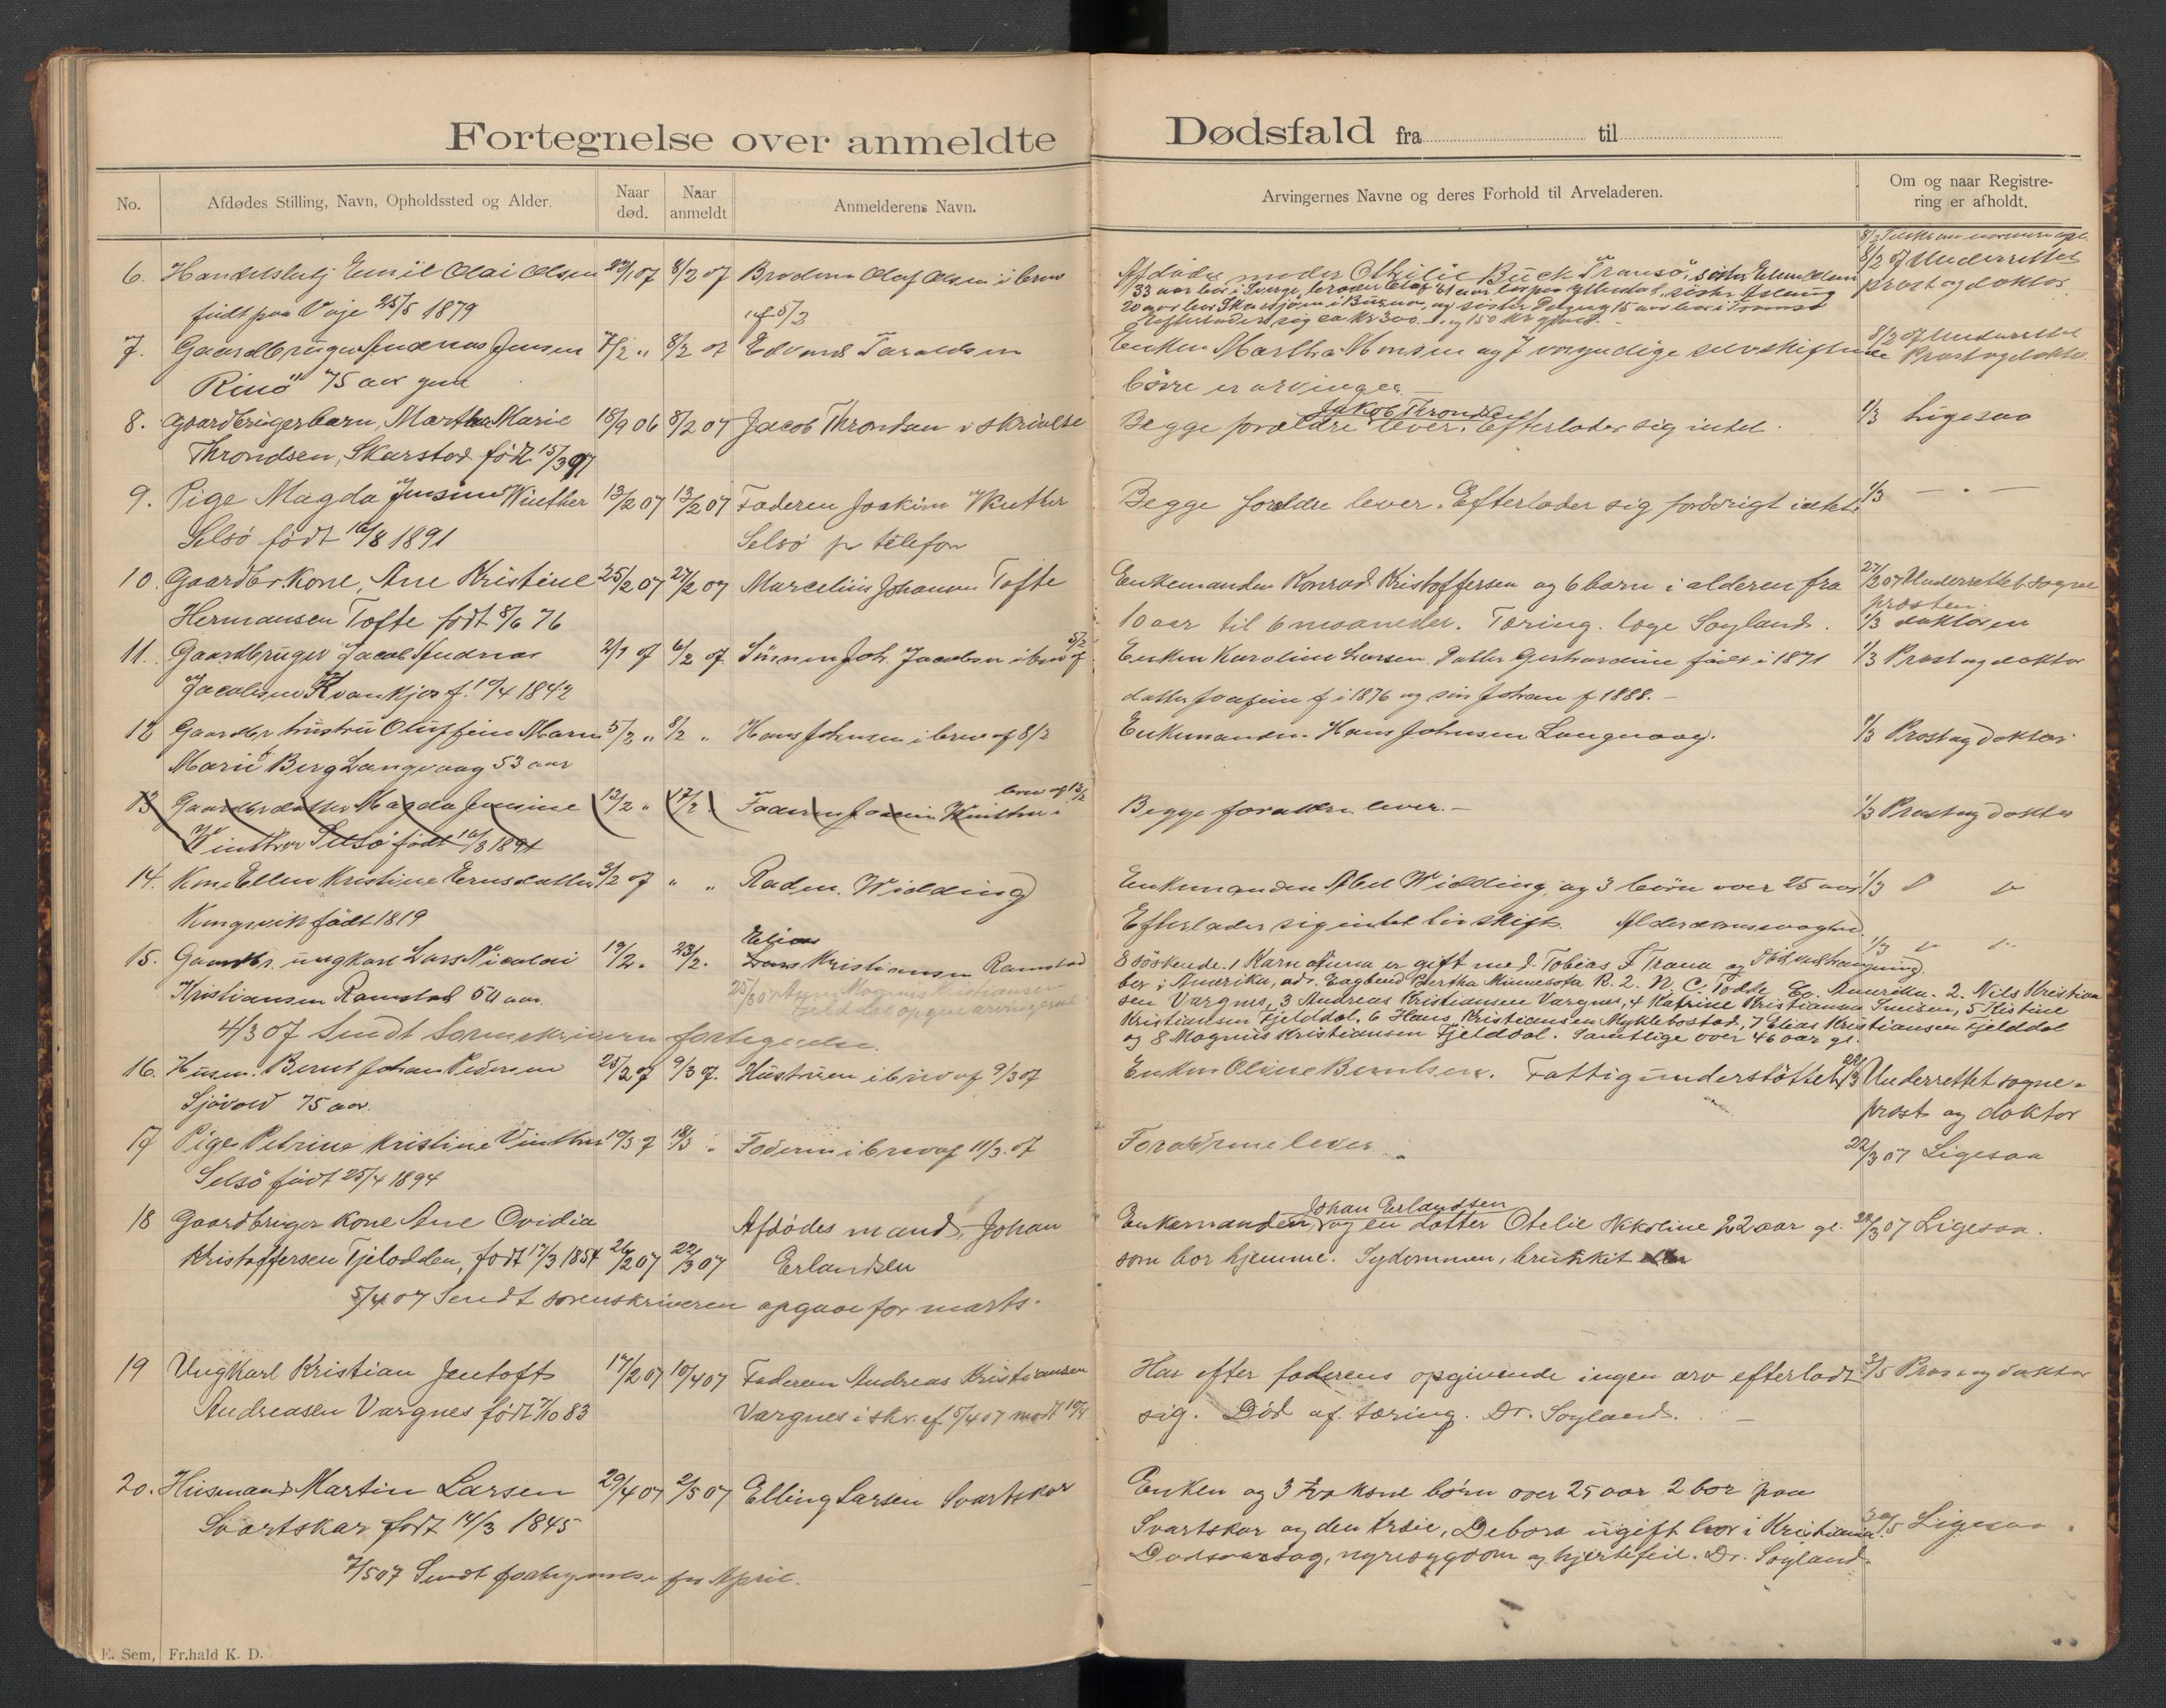 Fortegnelse over anmeldte Dødsfald fra til
No. Afdødes Stilling, Navn, Opholdssted og Alder. Naar død. Naar anmeldt Anmelderens Navn. Arvingernes Navne og deres Forhold til Arveladeren. Om og naar Registrering er afholdt.
6. Handelsbetj Emil Olai Olsen 27/1 07 8/2 07 Broderen Olaf Olsen i brev
født paa Vaje 25/5 1879 af 5/2
Afdødes moder Othilie Buck Tromsö, søster Ellen Olsen
33 aar bor i Sverge, broder Olaf 21 aar
20 aar bor og søster Dagny 15 aar bor i Tromsø
Efterlader sig ca kr 300.- og 150 kr gjæld.
8/2 07 Underrettet
prost og doktor
7. Gaardbruger Andreas Jensen 7/2 " 8/2 07 Edvard Taraldsen
Rinö 75 aar gml
Enken Martha Monsen og 7 myndige selvskiftende
börn er arvinger
8/2 07 Underrettet
Prost og doktor
8. Gaardbrugerbarn, Martha Marie 18/9 06 8/2 07 Jacob Throndsen i skrivelse
Throndsen, Skarstad født 15/3 97
Jakob Throndsen
Begge forældre lever. Efterlader sig intet. 1/3 Ligesaa
9. Pige Magda Jensine Winther 13/2 07 13/2 07 Faderen Joakim Winther
Selsö født 16/8 1891 Selsö pr telefon
Begge forældre lever. Efterlader sig forövrigt intet. 1/3 — " —
10. Gaardbr. Kone, Ane Kristine 25/2 07 27/2 07 Marcelius Johansen Tofte
Hermansen Tofte født 8/6 76
Enkemanden Konrad Kristoffersen og 6 barn i alderen fra
10 aar til 6 maaneder. Tæring. læge Soyland.
27/2 07 Underrettet sogne
prosten.
1/3 doktoren
11. Gaardbruger Jacob Andreas 2/1 07 6/2 07. Sönnen Joh. Jacobsen i brev af 5/2
Jacobsen Kvankjos f. 10/4 1842
Enken Karoline Larsen. Datter Gerhardine født i 1871
datter Josefine f i 1876 og søn Johan f 1888. —
1/3 Prost og doktor
12 Gaardbr hustru Oluffine Maren 5/2 " 8/2 " Hans Johnsen i brev af 8/2
Marie Berg Langvaag 53 aar
Enkemanden Hans Johnsen Langvaag. 1/3 Prost og doktor
13 Gaardbr datter Magda Jensine 13/2 " 17/2. Faderen Joakim Winther i brev af 13/2
Winther Selsö født 16/8 1891
Begge forældre lever. — 1/3 Prost og doktor
14. Kone Ellen Kristine Ernsdatter 3/2 07 " " Raden. Widding
Kongsvik født 1819
Enkemanden Abel Widding og 3 börn over 25 aar 1/3
Efterlader sig intet til skifte. Alderdomssvaghed.
15. Gaardbr. ungkarl Lars Nicolai 19/2. 23/2. Elias Lars Kristiansen Ramstad
Kristiansen Ramstad 50 aar.
25/3 07 Magnus Kristiansen
Fjelddal opgave arvingerne
8 söskende. 1 Karn Anna er gift med Tobias F Trana og Död ved hængning.
bor i Amerika, adr. Eagbend Bertha Minnesota R. 2. N. C. Todde Co. Amerika. 2. Nils Kristian
sen Vargnes, 3 Andreas Kristiansen Vargnes, 4 Katrine Kristiansen Sneisen, 5 Kistine
Kristiansen Fjelddal, 6 Hans Kristiansen Myklebostad, 7 Elias Kristiansen Fjelddal
og 8 Magnus Kristiansen Fjelddal. Samtlige over 46 aar gl.
4/3 07 Sendt Sorenskriveren fortegnelse.
16. Husm. Bernt Johan Pedersen 25/2 07 9/3 07. Hustruen i brev af 9/3 07
Sjövold 75 aar.
Enken Oline Berntsen. Fattigunderstöttet 22/3 Underrettet sogne-
prost og doktor
17 Pige Petrine Kristine Vinther 10/3 7 18/3 " Faderen i brev af 11/3. 07
Selsö født 25/4 1894
Forældrene lever 22/3 07 Ligesaa
18 Gaardbruger Kone Ane Ovidia Afdödes mand, Johan
Kristoffersen Fjelddalen, født 17/3 1854 26/2 07 22/3 07 Erlandsen
Johan Erlandsen
Enkemanden og en datter Otelie Nikoline 22 aar gl. 22/3 07 Ligesaa.
som bor hjemme. Sydommen, brutskit
5/4 07 Sendt sorenskriveren opgave for marts.
19 Ungkarl Kristian Jentoft 17/2 07 10/4 07 Faderen Andreas Kristiansen
Andreasen Vargnes født 7/10 83 Vargnes i skr. af 5/4 07 modt 10/4
Har efter faderens opgivende ingen arv efterladt 3/5 Prost og doktor
sig. Död af tæring. Dr. Soyland. —
20. Husmand Martin Larsen 29/4 07 2/5 07 Elling Larsen Svartskar
Svartskar født 14/3 1845
Enken og 3 voksne börn over 25 aar 2 bor paa
Svartskar og den tredie, Debora ugift bor i Kristiania. 30/5 Ligesaa.
Dödsaarsag, nyresygdom og hjertefeil. Dr. Soyland.
7/5 07 Sendt fortegnelse for April.
E. Sem, Fr.hald K. D.